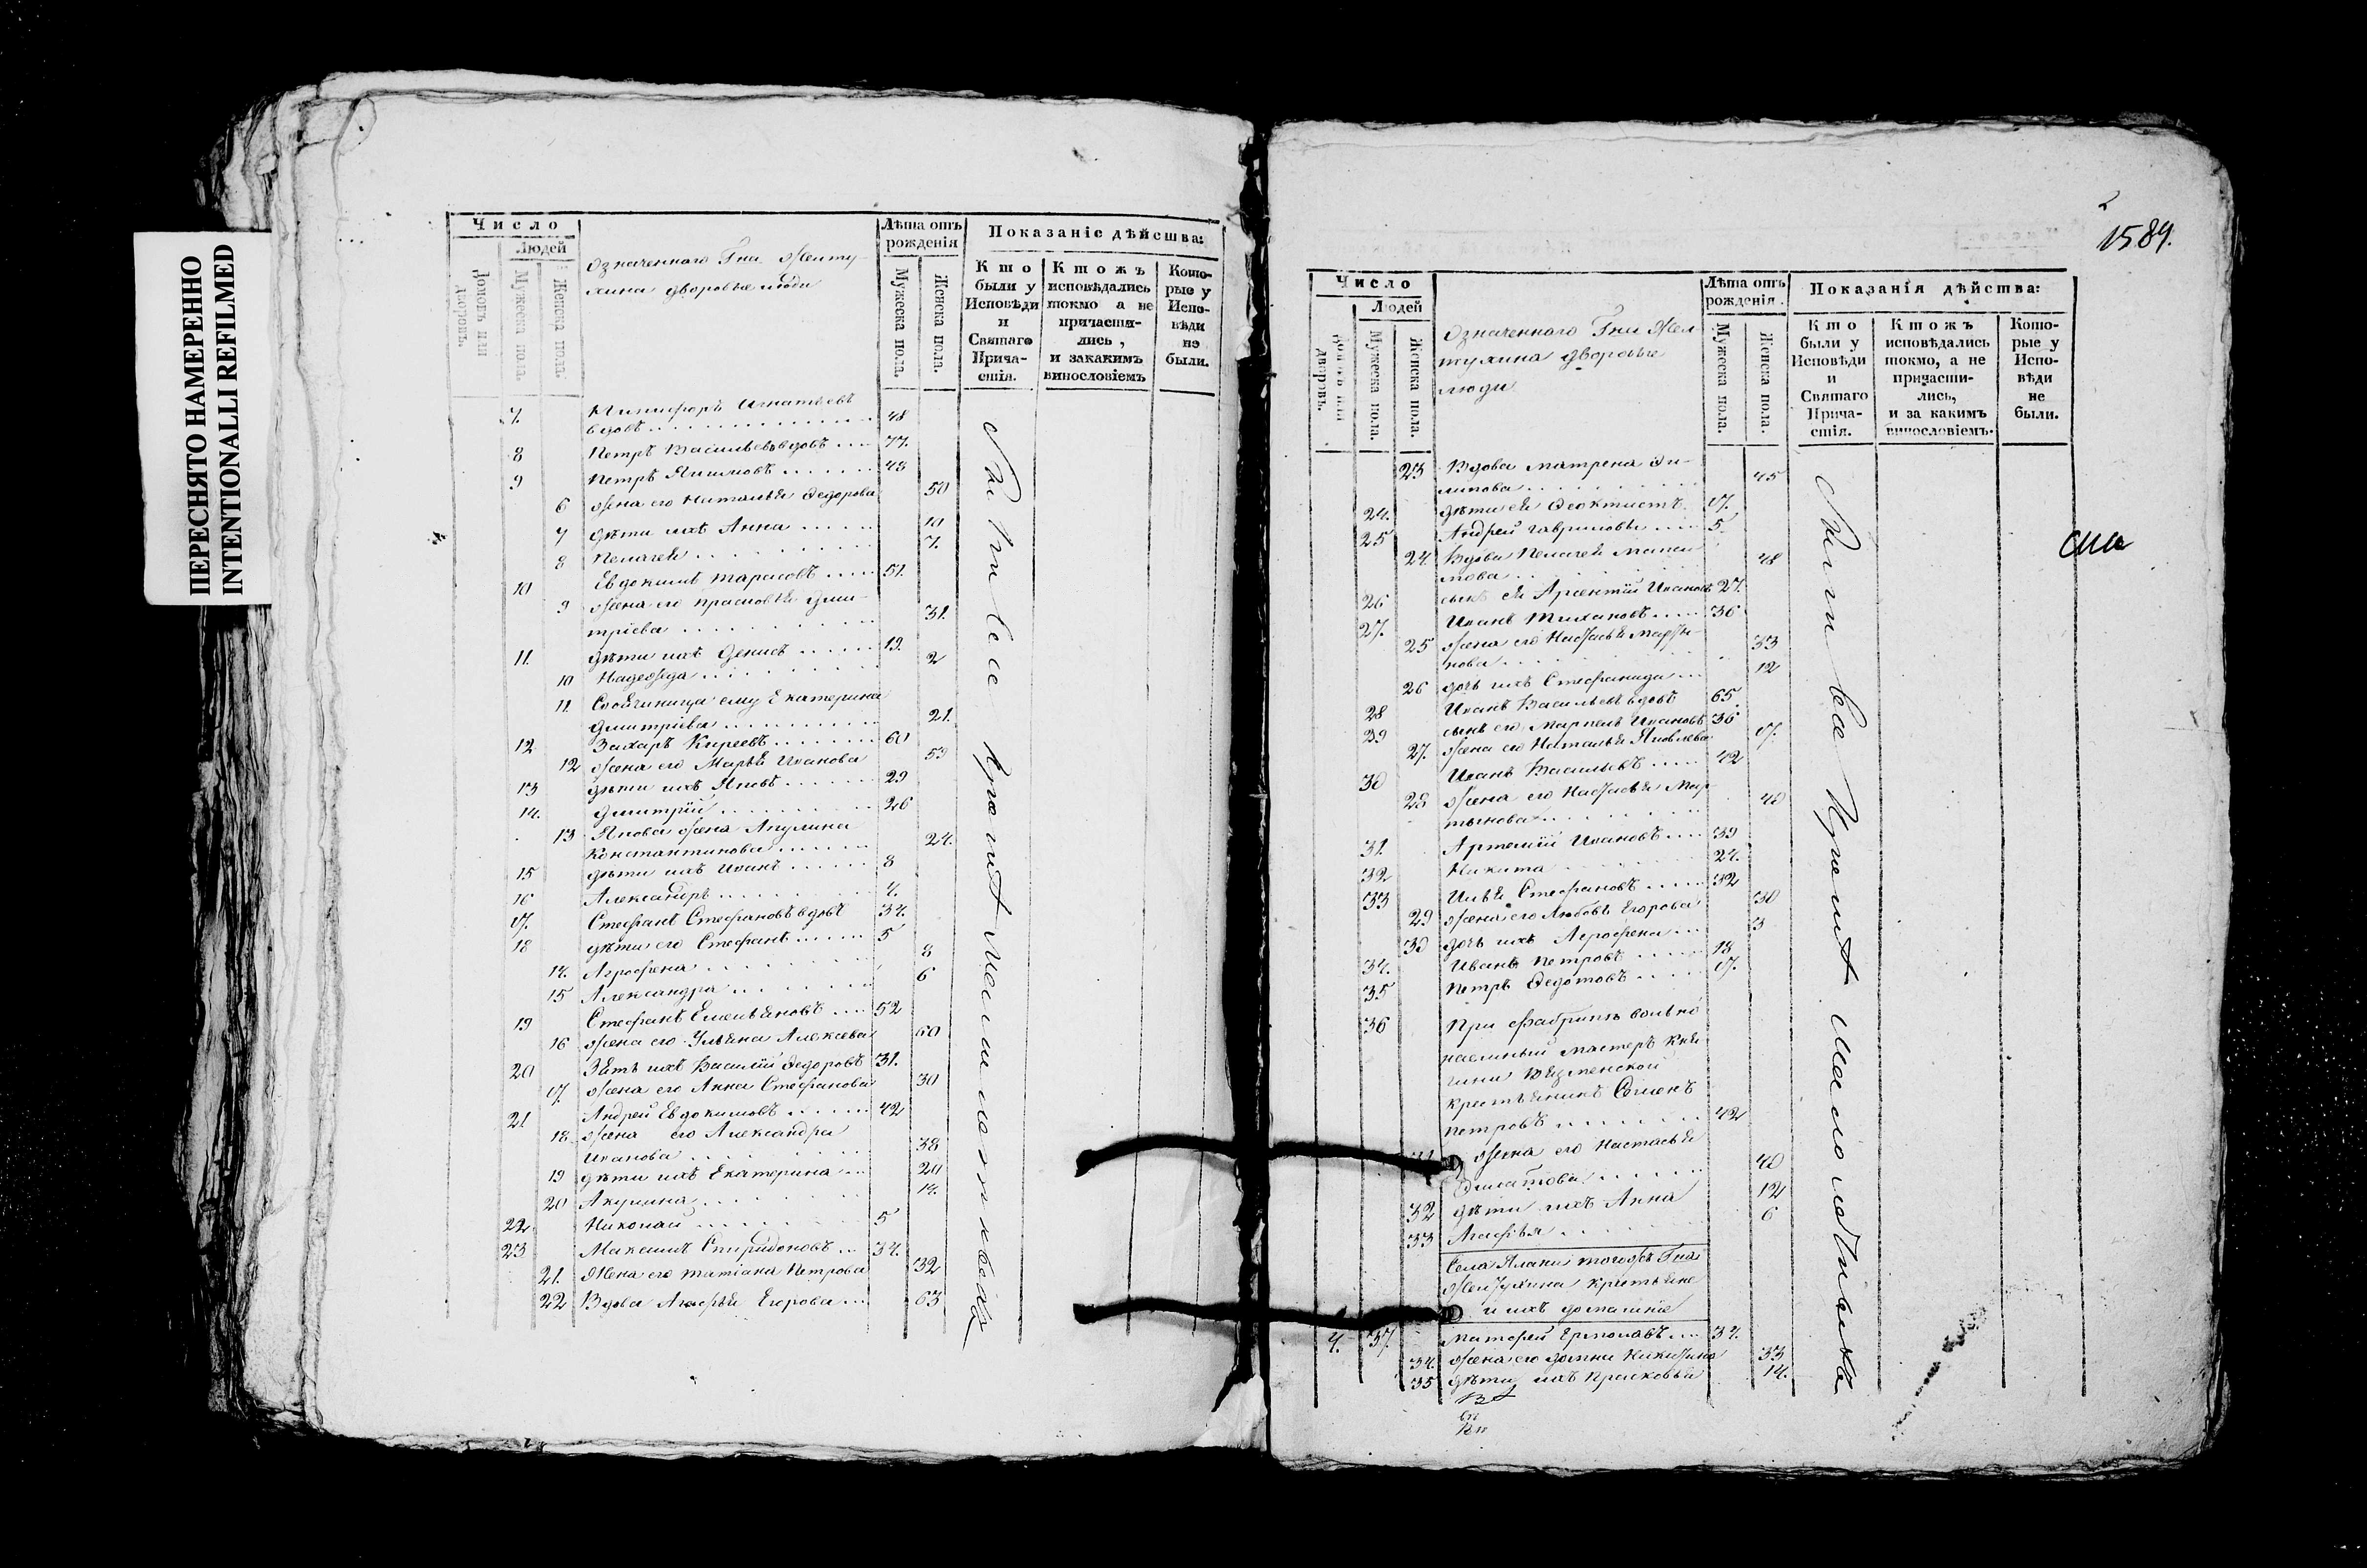 ПЕРЕСНЯТО НАМЕРЕННО
INTENTIONALLI REFILMED
Число
Людей
Домовъ или дворовъ.
Мужеска пола.
Женска пола.
Означеннаго Гна Желту-
хина дворовые люди
Лѣта отъ рожденія
Мужеска пола.
Женска пола.
Показаніе дѣйства:
Кто были у Исповѣди и Святаго Прича-стія.
Ктожъ исповѣдались токмо а не причасти-лись, и закакимъ винословіемъ
Кото-рые у Испо-вѣди не были.
7. Никифоръ Игнатьевъ
вдовъ 48
8 Петръ Васильевъ вдовъ 77.
9 Петръ Якимовъ 48
6 жена его Наталья Федорова 50
7 дѣти ихъ Анна 10
8 Пелагея 7.
10 Евдокимъ Тарасовъ 51.
9 жена его Прасковья Дми-
тріева 31.
11. дѣти ихъ Денисъ 13.
10 Надежда 2
11. Своячиница ему Екатерина
Дмитріева 21.
12 Захаръ Киреевъ 60
12 жена его Марья Иванова 53
13 дѣти ихъ Яковъ 29
14. Дмитрій 26
13 Якова жена Акулина
Константинова 24.
15 дѣти ихъ Иванъ 8
16 Александръ 4.
17. Стефанъ Стефановъ вдовъ 34.
18 дѣти его Стефанъ 5
14. Агрофена 8
15 Александра 6
19 Стефанъ Емельяновъ 52
16 жена его Ульяна Алексева 60
20 Зять ихъ Василій Федоровъ 31.
17. жена его Анна Стефанова 30
21 Андрей Евдокимовъ 42
18 жена его Александра
Иванова 38
19 дѣти ихъ Екатерина 20
20 Акулина 14.
22. Николай 5
23 Максимъ Спиридоновъ 34.
21. Жена его Татіана Петрова 32
22 Вдова Агафья Егорова 63
1589.
Число
Людей
дворовъ.
Мужеска пола.
Женска пола.
Означеннаго Гна Жел-
тухина дворовые
люди
Лѣта отъ рожденія.
Мужеска пола.
Женска пола.
Показанія дѣйства:
Кто были у Исповѣди и Святаго Прича-стія.
Ктожъ исповѣдались токмо, а не причасти-лись, и за какимъ винословіемъ.
Кото-рые у Испо-вѣди не были.
23 Вдова Матрена Фи-
липова 45
24. дѣти ея Феоктистъ 17.
25 Андрей Гавриловы 5
24. Вдова Пелагея
48
26 сынъ ея Арсентій Ивановъ 27.
27. Иванъ Тихановъ 36
25 жена его Настасья Марты-
нова 33
26 дочь ихъ Стефанида 12
28 Иванъ Васильевъ вдовъ 65
29 сынъ его Ивановъ 36
27. жена его Наталья Яковлева 17.
30 Иванъ Васильевъ 42
28 жена его Настасья Мар-
тынова 40
31. Артемій Ивановъ 39
32 Никита 24.
33 Илья Стефановъ 32
29 жена его Любовь Егорова 30
30 дочь ихъ Агрофена 3
34. Иванъ Петровъ 18
35 Петръ Федотовъ 17.
36 При фабрикѣ вольно
наемный мастеръ Кня
гини Вяземской
крестьянинъ Семенъ
Петровъ 42
жена его Настасья
Филатова 40
32 дѣти ихъ Анна 12
33 Агафья 6
Села тогожъ Гна
Желтухина крестьяне
и ихъ домашніе
4. 37. Матфей Ермолаевъ 34.
34. жена его Домна Никитина 33
35 дѣти ихъ Прасковья 14.